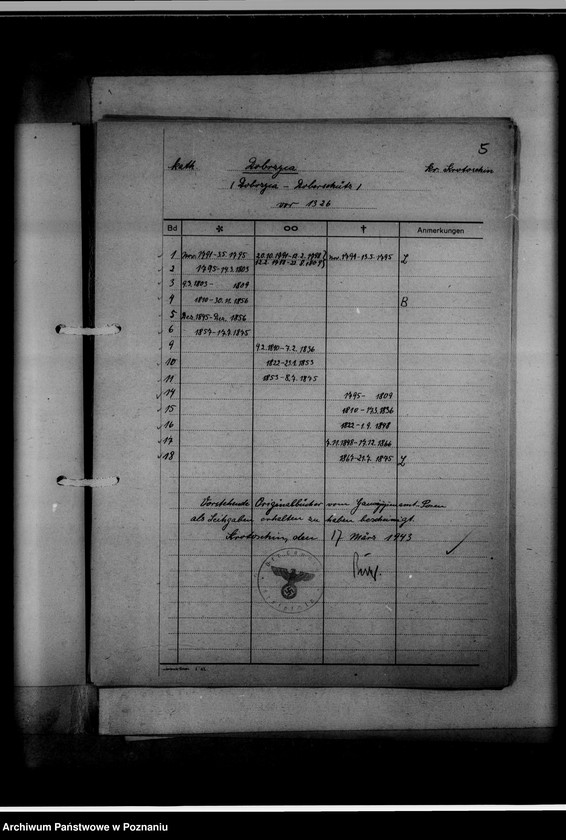 5
kath. Dobrzyca Kr. Krotoschin
( Dobrzyca - Doberschütz )
vor 1326
Bd * ∞ † Anmerkungen
1 Nov. 1791-3.5.1795 20.10.1791-12.2.1798 Nov. 1791-13.3.1795 L
2 1795-19.3.1803
3 9.3.1803- 1809
4 1810-30.11.1856 B
5 Dez. 1845-Dez. 1856
6 1857-17.7.1875
9 9.2.1810-7.2.1836
10 1822-23.1.1853
11 1853-8.7.1875
14 1795- 1809
15 1810-17.3.1836
16 1822-1.9.1848
17 7.11.1848-17.12.1866
18 1867-21.7.1875 L
Vorstehende Originalbücher vom Gausippenamt Posen
als Leihgaben erhalten zu haben bescheinigt.
Krotoschin, den 17. März 1943
Archiwum Państwowe w Poznaniu